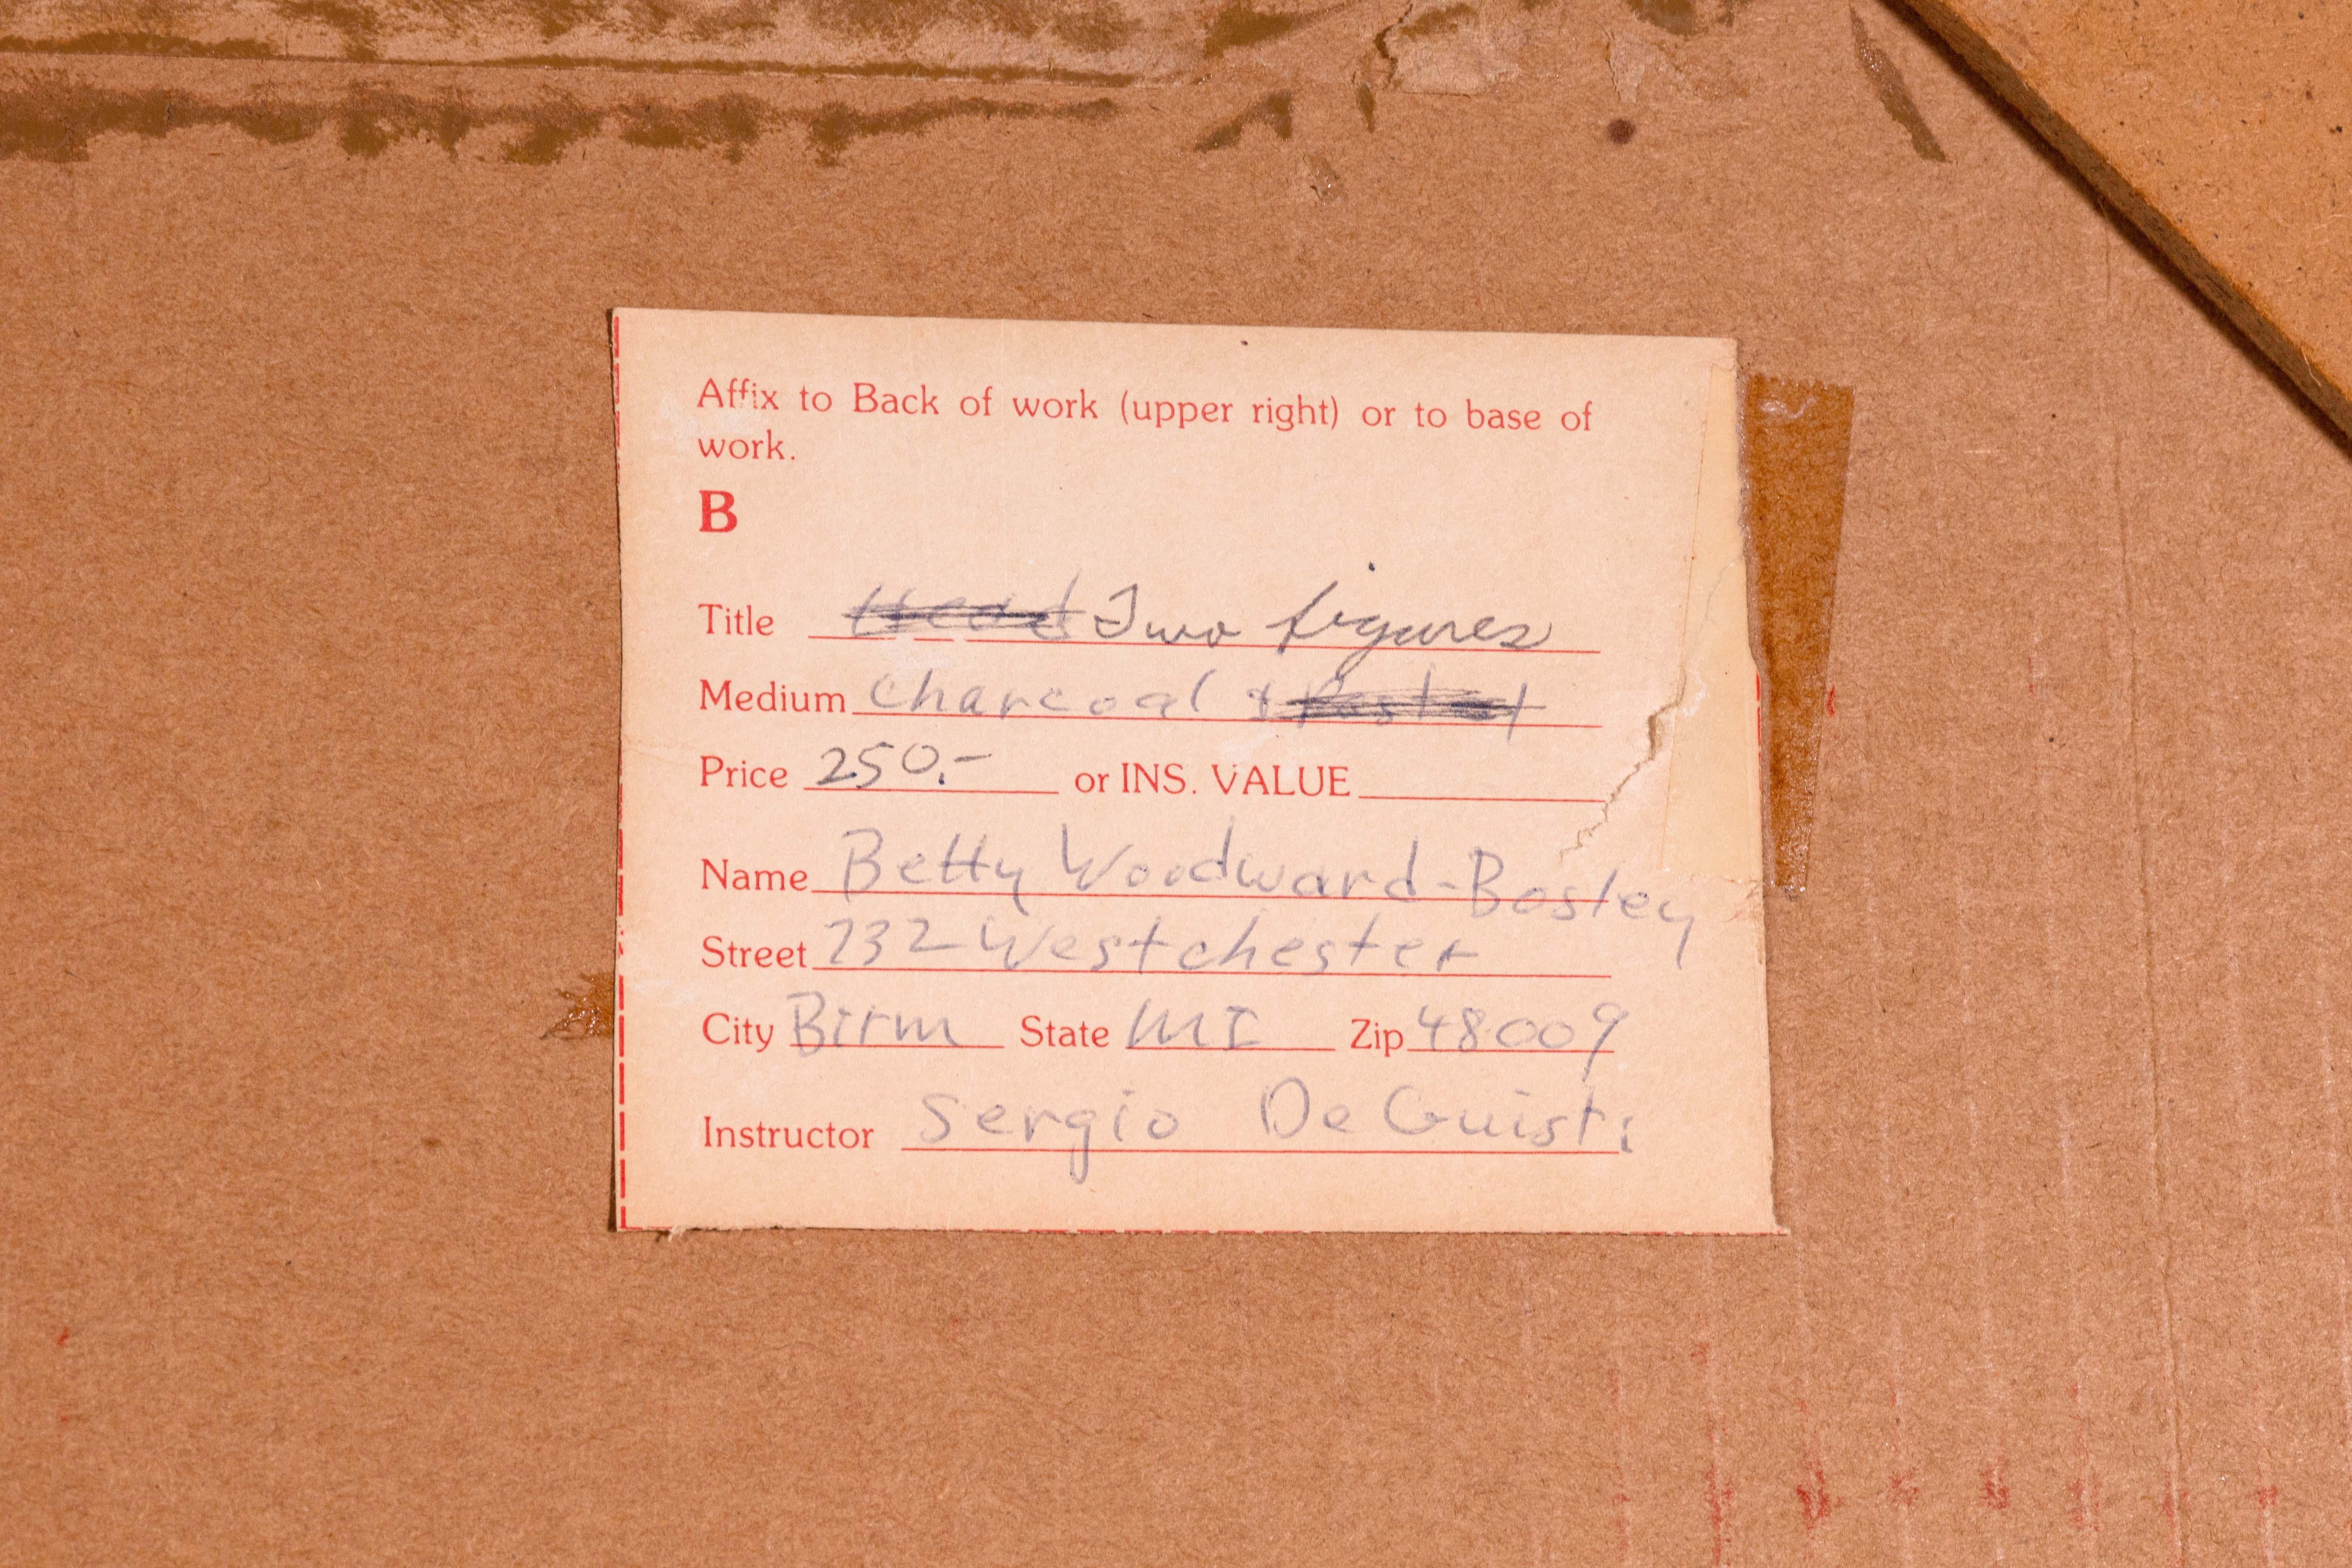 Affix to Back of work (upper right) or to base of
work.
B
Title Head Two figures
Medium Charcoal & Pastel
Price 250.- or INS. VALUE
Name Betty Woodward-Bosley
Street 732 Westchester
City Birm State MI Zip 48009
Instructor Sergio DeGuisti